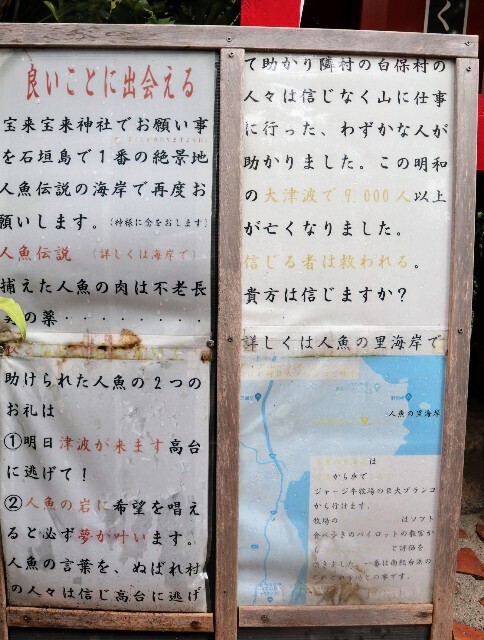 良いことに出会える
宝来宝来神社でお願い事
を石垣島で1番の絶景地
人魚伝説の海岸で再度お
願いします。(神様に念をおします)
人魚伝説 (詳しくは海岸で)
捕えた人魚の肉は不老長
の薬・・・・・・・・
助けられた人魚の2つの
お礼は
①明日津波が来ます高台
に逃げて!
②人魚の岩に希望を唱え
ると必ず夢が叶います。
人魚の言葉を、ぬばれ村
の人々は信じ高台に逃げ
て助かり隣村の白保村の
人々は信じなく山に仕事
に行った、わずかな人が
助かりました。この明和
の大津波で9,000人以上
が亡くなりました。
信じる者は救われる。
貴方は信じますか?
詳しくは人魚の里海岸で
人魚の里海岸
は
から歩で
ジャージー牧場の巨大ブランコ
から行けます。
牧場の はソフト
食べ歩きのパイロットの教官か
ら で評価を
頂きました。一番は南
く